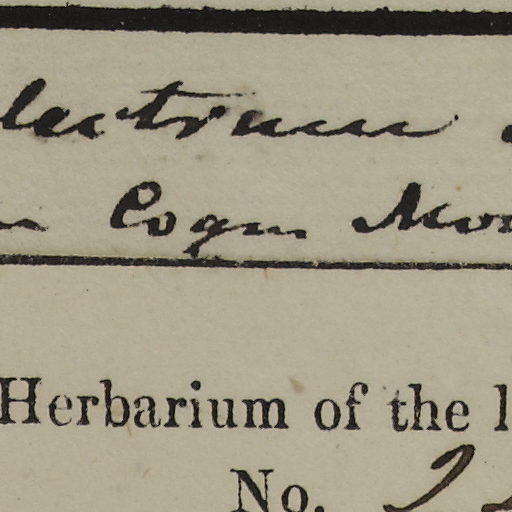 lectrum
Cogn Mon
Herbarium of the l
No. 2